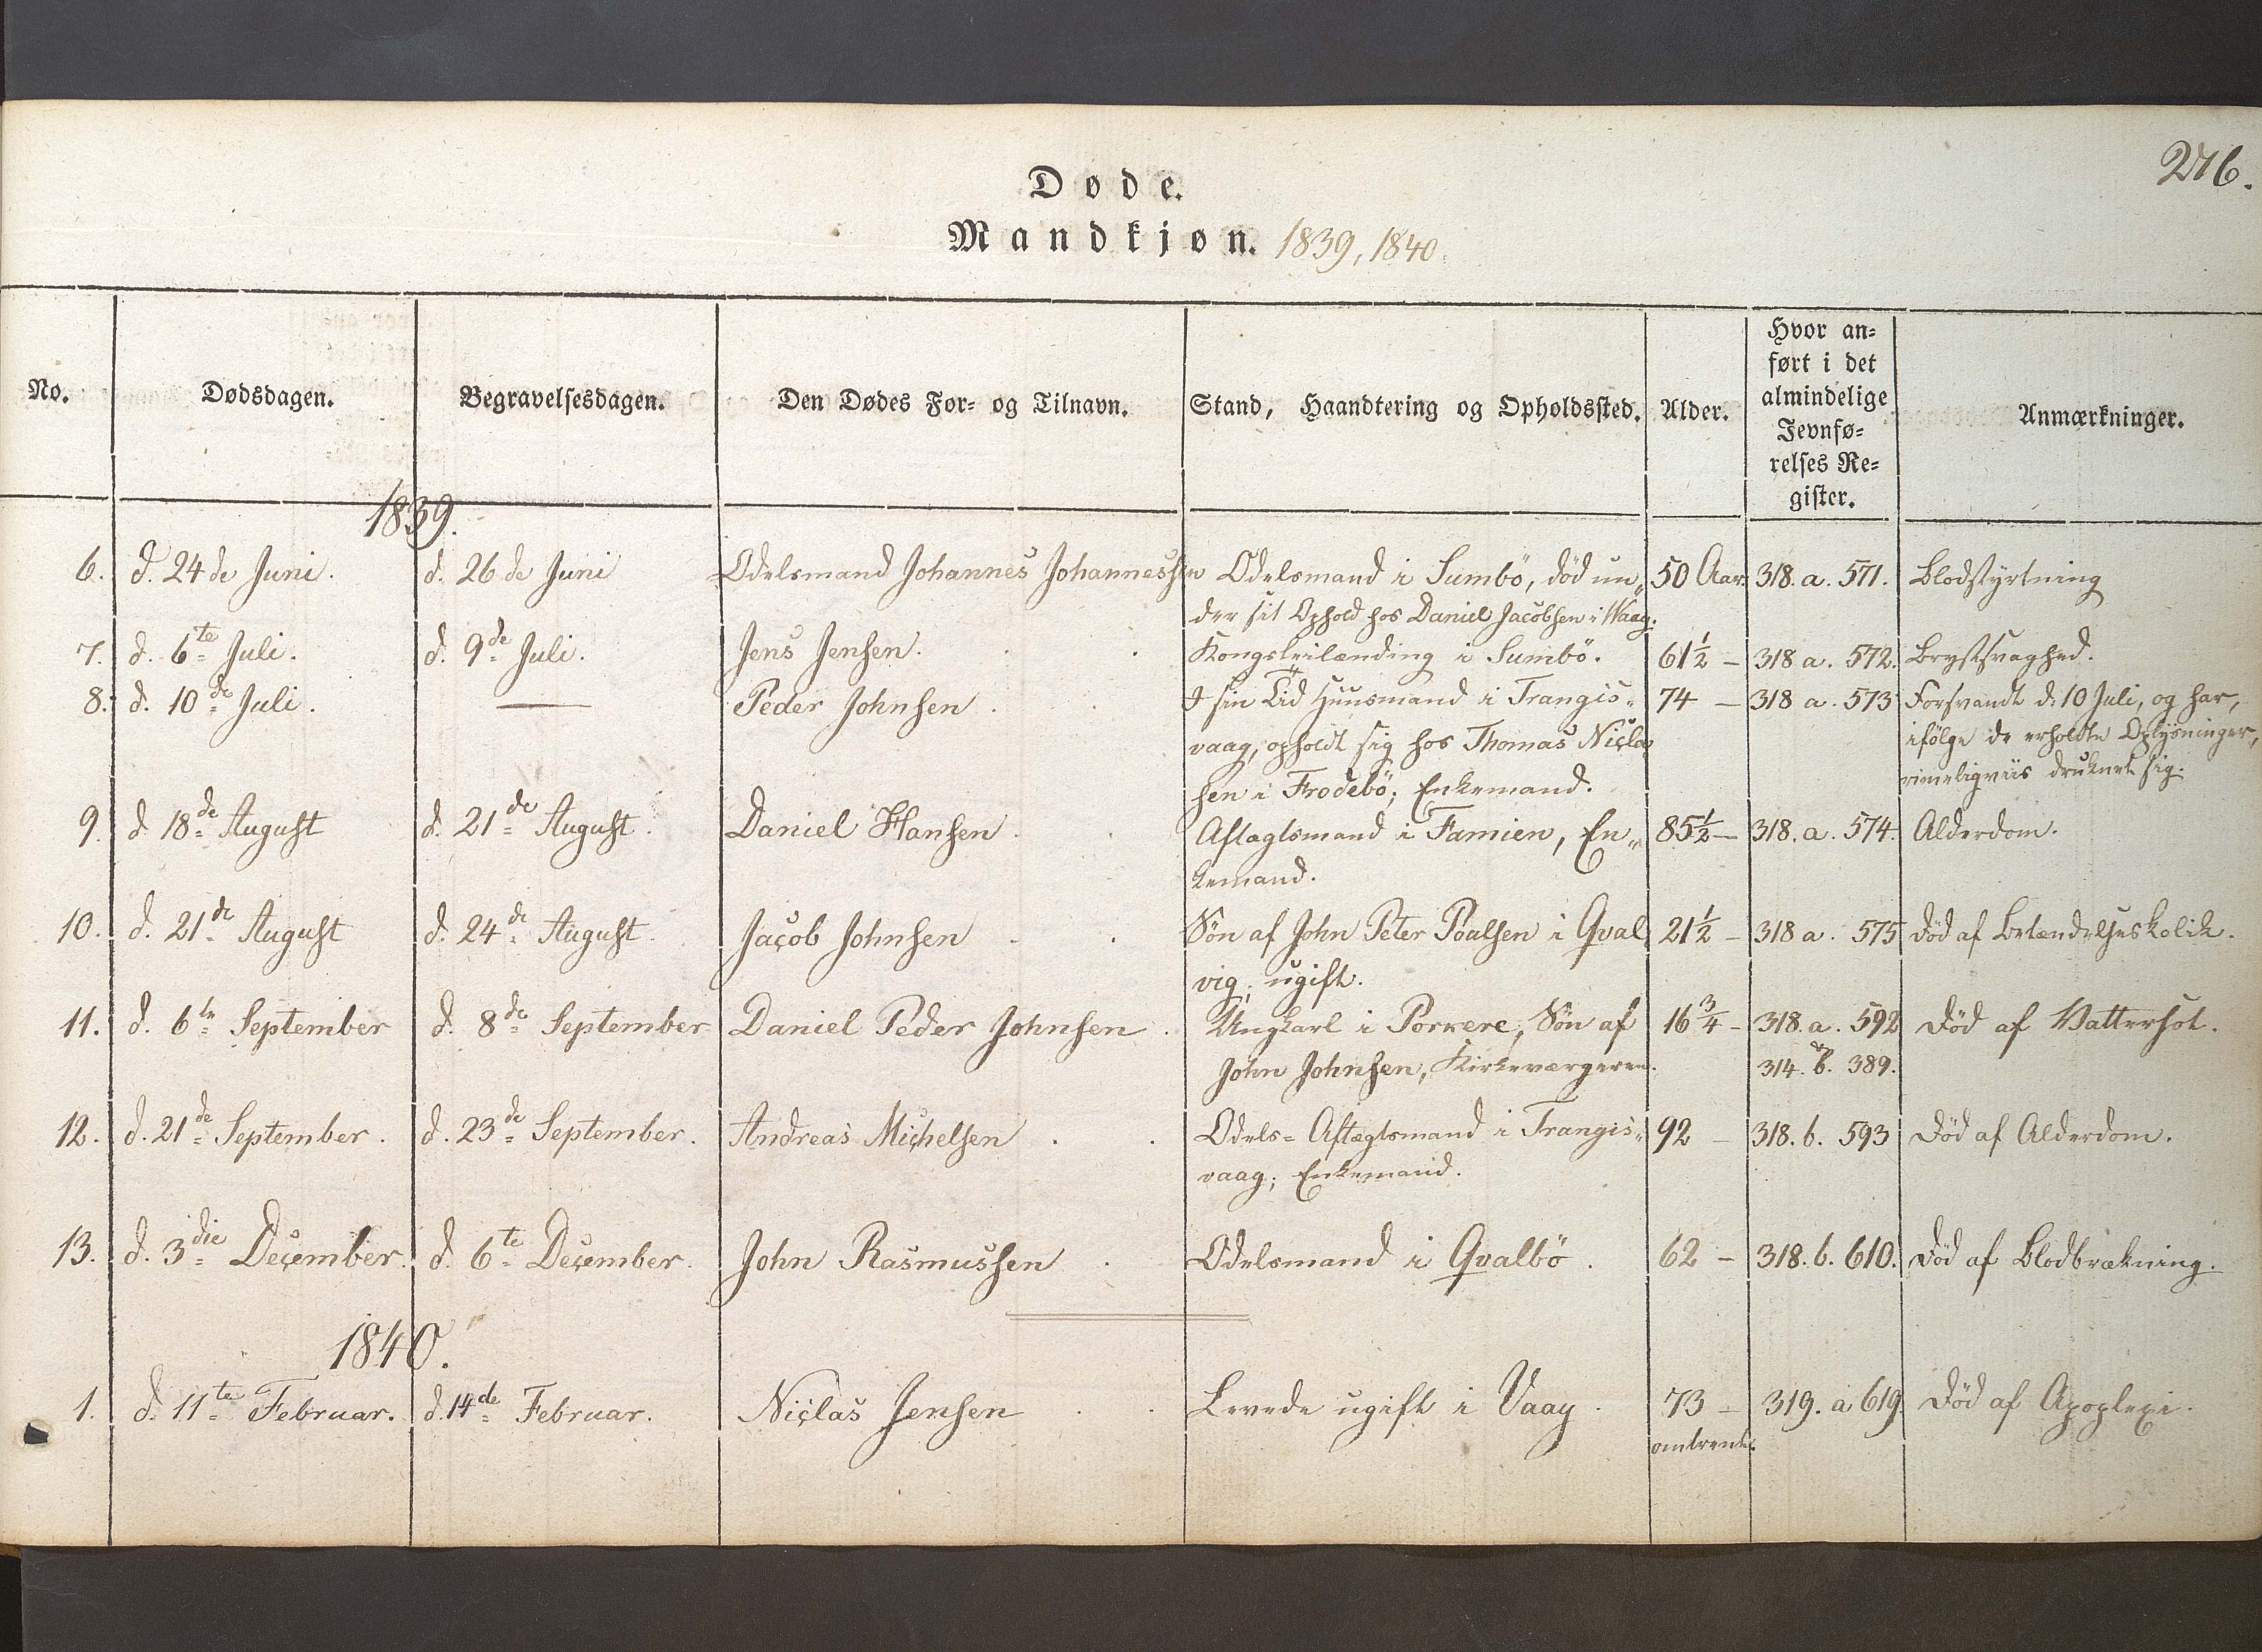 276.
Døde.
Mandkjøn. 1839, 1840.
No. Dødsdagen. Begravelsesdagen. Den Dødes For- og Tilnavn. Stand, Haandtering og Opholdssted. Alder. Hvor an-
ført i det
almindelige
Jevnfø-
relses Re-
gister. Anmærkninger.
1839.
6. d. 24de Juni. d. 26de Juni Odelsmand Johannes Johannessen Odelsmand i Sumbö, död un- 50 Aar. 318. a. 571. Blodstyrtning
der sit Ophold hos Daniel Jacobsen i Waag.
7. d. 6te Juli. d. 9de Juli. Jens Jensen. Kongsleilænding i Sumbö. 61½ – 318 a. 572. Brystsvaghed.
8. d. 10de Juli. — Peder Johnsen. I sin Tid Huusmand i Trangis- 74 – 318 a. 573 Forsvandt d. 10 Juli, og har,
vaag, opholdt sig hos Thomas Niclas ifölge de erholdte Oplysninger,
sen i Frodebö; Enkemand. rimeligviis druknet sig.
9. d. 18de August d. 21de August. Daniel Hansen. Aftægtsmand i Famien, En- 85½ – 318. a. 574. Alderdom.
kemand.
10. d. 21de August d. 24de August. Jacob Johnsen Sön af John Peter Poulsen i Qval 21½ – 318 a. 575 död af Betændelseskolik.
vig; ugift.
11. d. 6te September d. 8de September Daniel Peder Johnsen. Ungkarl i Porkere, Sön af 16¾ – 318. a. 592 Död af Vattersot.
John Johnsen, Kirkeværgeren. 314. b. 389.
12. d. 21de September. d. 23de September. Andreas Michelsen. Odels-Aftægtsmand i Trangis- 92 – 318. b. 593 Död af Alderdom.
vaag; Enkemand.
13. d. 3die December. d. 6te December. John Rasmussen. Odelsmand i Qvalbö. 62 – 318. b. 610. Död af Blodbrækning.
1840.
1. d. 11te Februar. d. 14de Februar. Niclas Jensen Levede ugift i Vaag. 73 – 319. a 619 Död af Apoplexi.
omtrent.